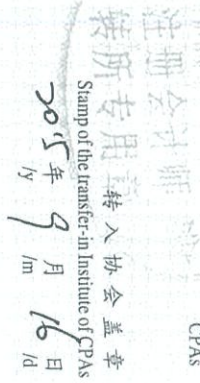 CPAs
注册会计师
转所专用章
转入协会盖章
Stamp of the transfer-in Institute of CPAs
2015年 9月 16日
/y /m /d